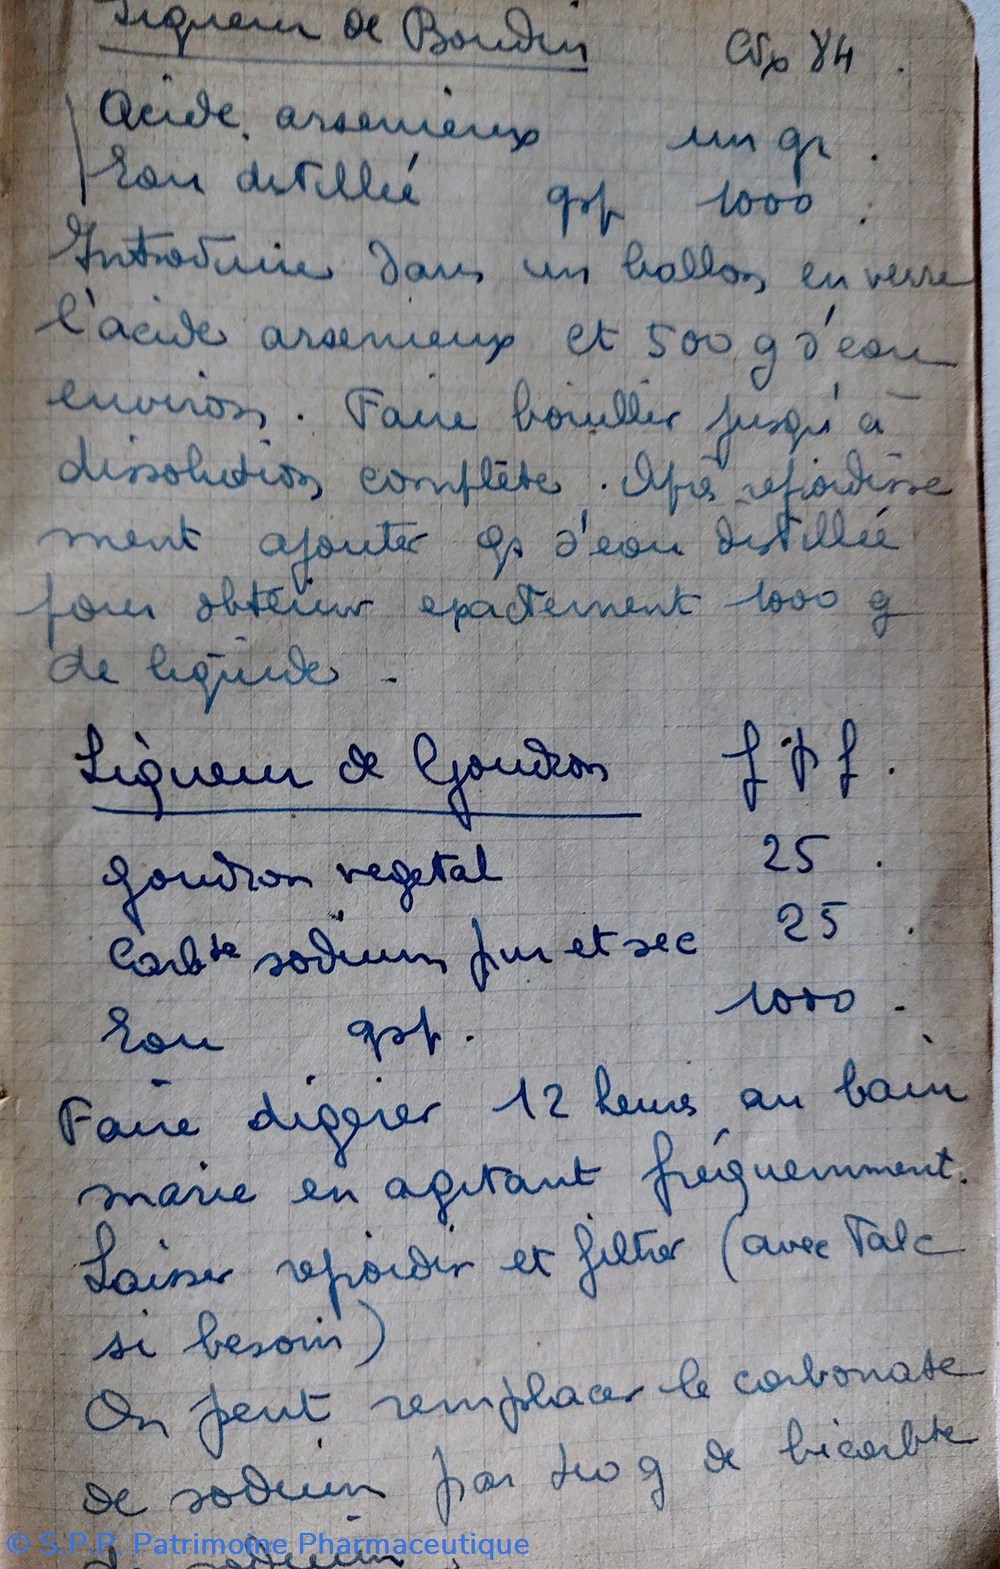 Liqueur de Boudin
Acide arsenieux un gr.
Eau distillée qsp 1000.
Introduire dans un ballon en verre
l'acide arsenieux et 500 g d'eau
environ. Faire bouillir jusqu'à
dissolution complète. Après refroidisse
ment ajouter qs d'eau distillée
pour obtenir exactement 1000 g
de liquide -
Liqueur de Goudron
goudron vegetal 25.
Carbte sodium pur et sec 25.
Eau qsp. 1000.
Faire digérer 12 heures au bain
marie en agitant fréquemment.
Laisser refroidir et filtrer (avec Talc
si besoin)
On peut remplacer le carbonate
de sodium par g de bicarbte
de sodium.
© S.P.P. Patrimoine Pharmaceutique